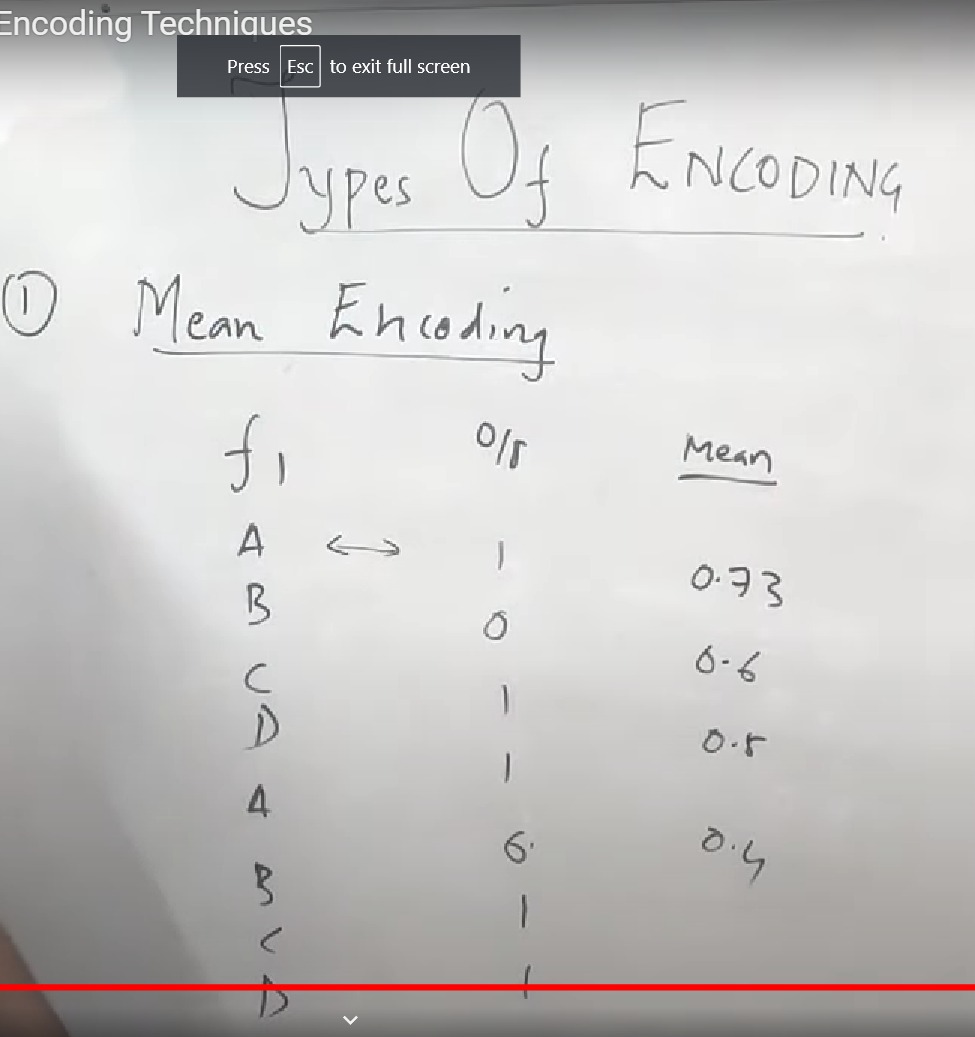 Encoding Techniques
Press Esc to exit full screen
Types Of ENCODING
① Mean Encoding
f1 O/P Mean
A ↔ 1
0.73
B 0
0.6
C 1
D 1
0.5
A 0
0.4
B 1
C 1
D